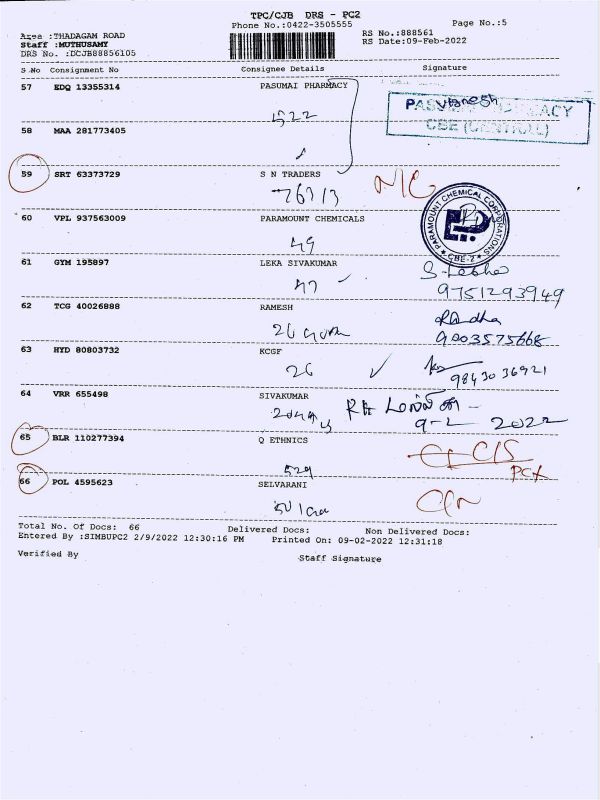 TPC/CJB DRS - PC2
Phone No.:0422-3505555
Page No.:5
Area :THADAGAM ROAD
Staff :MUTHUSAMY
DRS No. :DCJB88856105
RS No.:888561
RS Date:09-Feb-2022
S No Consignment No Consignee Details Signature
57 EDQ 13355314 PASUMAI PHARMACY
1522
58 MAA 281773405
CBE (CENTRAL)
59 SRT 63373729 S N TRADERS
N/C
60 VPL 937563009 PARAMOUNT CHEMICALS
49
PARAMOUNT CHEMICAL CORPORATIONS
CBE-2
61 GYM 195897 LEKA SIVAKUMAR
9751293949
62 TCG 40026888 RAMESH
Radha
9003575668
63 HYD 80803732 KCGF
26
9843036921
64 VRR 655498 SIVAKUMAR
9-2 2022
65 BLR 110277394 Q ETHNICS
529
C/S
66 POL 4595623 SELVARANI
Total No. Of Docs: 66 Delivered Docs: Non Delivered Docs:
Entered By :SIMBUPC2 2/9/2022 12:30:16 PM Printed On: 09-02-2022 12:31:18
Verified By Staff Signature